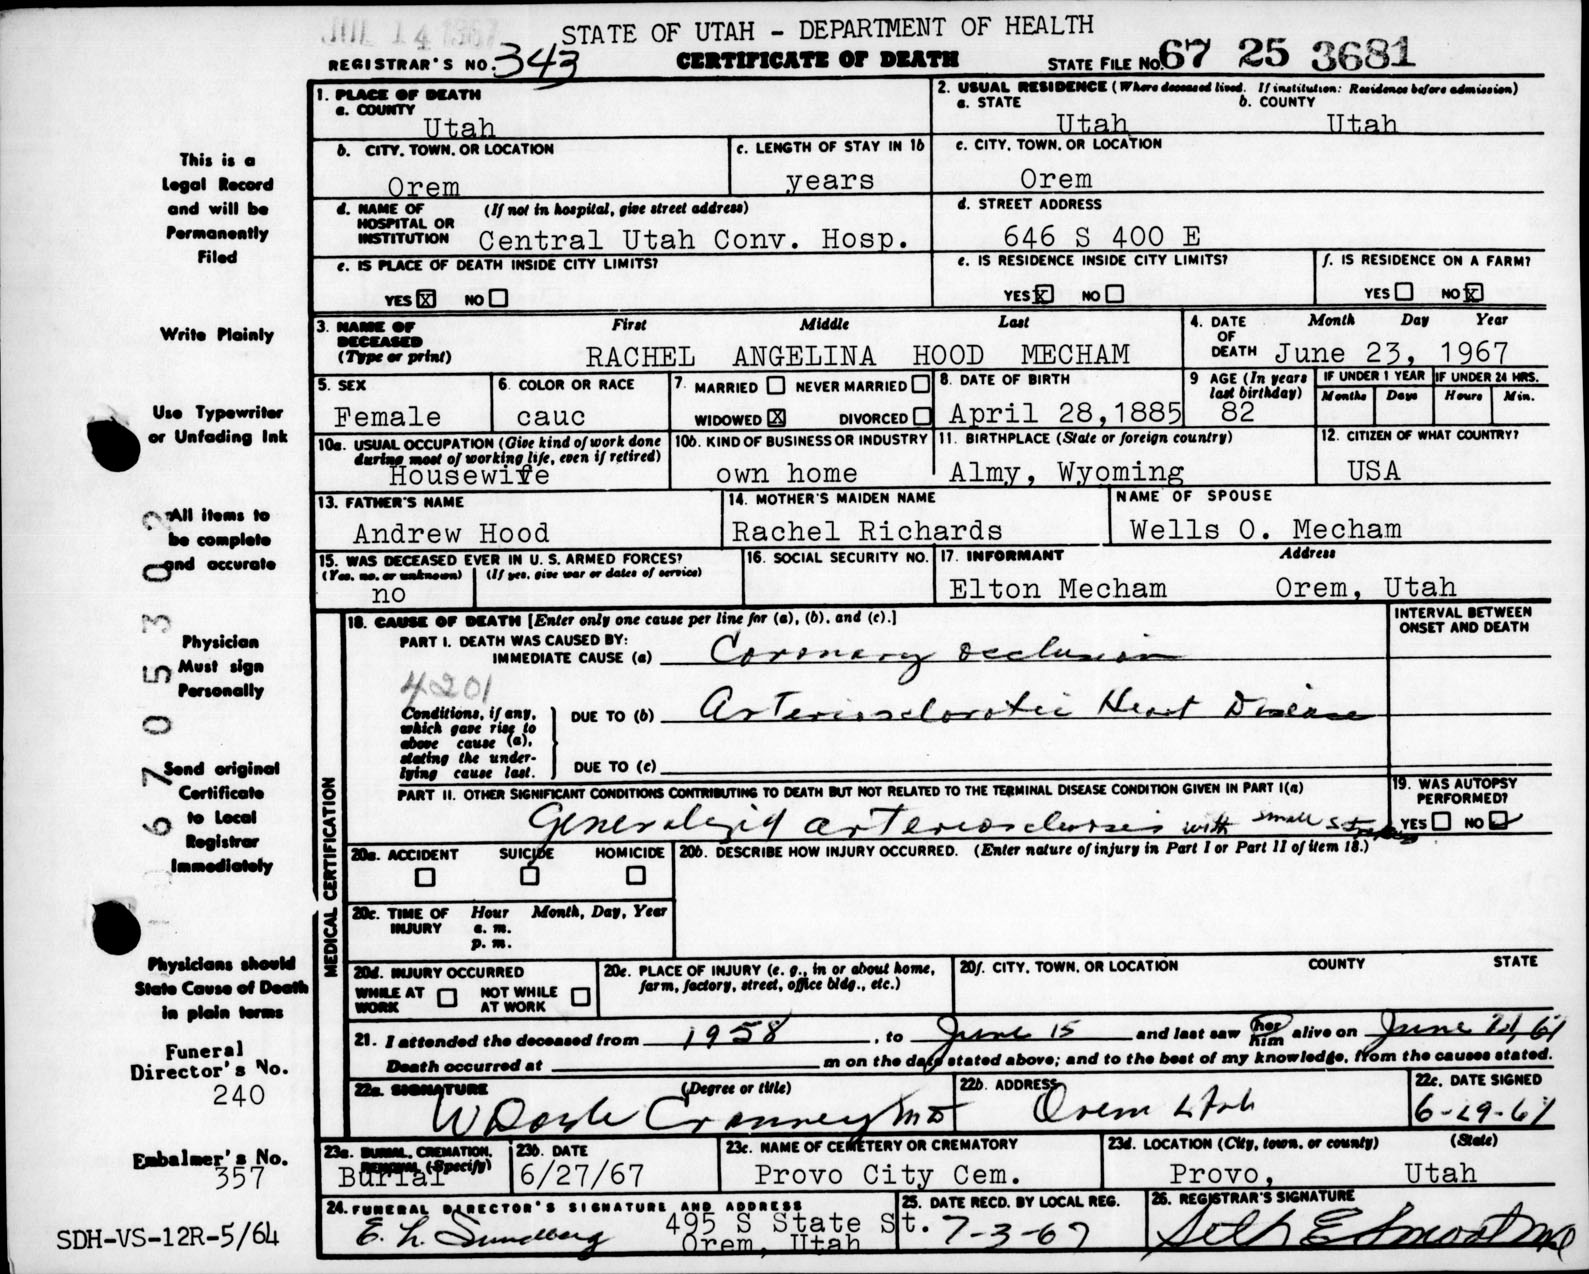 JUL 14 1967
STATE OF UTAH - DEPARTMENT OF HEALTH
REGISTRAR'S NO. 343
CERTIFICATE OF DEATH
STATE FILE NO. 67 25 3681
This is a
Legal Record
and will be
Permanently
Filed
Write Plainly
Use Typewriter
or Unfading Ink
All items to
be complete
and accurate
Physician
Must sign
Personally
Send original
Certificate
to Local
Registrar
Immediately
Physicians should
State Cause of Death
in plain terms
Funeral
Director's No.
240
Embalmer's No.
357
SDH-VS-12R-5/64
6705302
1. PLACE OF DEATH
a. COUNTY
Utah
2. USUAL RESIDENCE (Where deceased lived. If institution: Residence before admission)
a. STATE b. COUNTY
Utah Utah
b. CITY, TOWN, OR LOCATION
Orem
c. LENGTH OF STAY IN 1b
years
c. CITY, TOWN, OR LOCATION
Orem
d. NAME OF (If not in hospital, give street address)
HOSPITAL OR
INSTITUTION Central Utah Conv. Hosp.
d. STREET ADDRESS
646 S 400 E
e. IS PLACE OF DEATH INSIDE CITY LIMITS?
YES X NO
e. IS RESIDENCE INSIDE CITY LIMITS?
YES X NO
f. IS RESIDENCE ON A FARM?
YES NO X
3. NAME OF First Middle Last
DECEASED
(Type or print) RACHEL ANGELINA HOOD MECHAM
4. DATE Month Day Year
OF
DEATH June 23, 1967
5. SEX
Female
6. COLOR OR RACE
cauc
7. MARRIED NEVER MARRIED
WIDOWED X DIVORCED
8. DATE OF BIRTH
April 28,1885
9 AGE (In years
last birthday)
82
IF UNDER 1 YEAR IF UNDER 24 HRS.
Months Days Hours Min.
10a. USUAL OCCUPATION (Give kind of work done
during most of working life, even if retired)
Housewife
10b. KIND OF BUSINESS OR INDUSTRY
own home
11. BIRTHPLACE (State or foreign country)
Almy, Wyoming
12. CITIZEN OF WHAT COUNTRY?
USA
13. FATHER'S NAME
Andrew Hood
14. MOTHER'S MAIDEN NAME
Rachel Richards
NAME OF SPOUSE
Wells O. Mecham
15. WAS DECEASED EVER IN U. S. ARMED FORCES?
(Yes, no, or unknown) (If yes, give war or dates of service)
no
16. SOCIAL SECURITY NO.
17. INFORMANT Address
Elton Mecham Orem, Utah
MEDICAL CERTIFICATION
18. CAUSE OF DEATH [Enter only one cause per line for (a), (b), and (c).]
INTERVAL BETWEEN
ONSET AND DEATH
PART I. DEATH WAS CAUSED BY:
IMMEDIATE CAUSE (a) Coronary occlusion
4201
Conditions, if any,
which gave rise to
above cause (a),
stating the under-
lying cause last.
DUE TO (b) Arteriosclerotic Heart Disease
DUE TO (c)
PART II. OTHER SIGNIFICANT CONDITIONS CONTRIBUTING TO DEATH BUT NOT RELATED TO THE TERMINAL DISEASE CONDITION GIVEN IN PART I(a)
Generalized arteriosclerosis with small strokes
19. WAS AUTOPSY
PERFORMED?
YES NO
20a. ACCIDENT SUICIDE HOMICIDE
20b. DESCRIBE HOW INJURY OCCURRED. (Enter nature of injury in Part I or Part II of item 18.)
20c. TIME OF Hour Month, Day, Year
INJURY a. m.
p. m.
20d. INJURY OCCURRED
WHILE AT NOT WHILE
WORK AT WORK
20e. PLACE OF INJURY (e. g., in or about home,
farm, factory, street, office bldg., etc.)
20f. CITY, TOWN, OR LOCATION COUNTY STATE
21. I attended the deceased from 1958, to June 15 and last saw her him alive on June 21, 67
Death occurred at m on the date stated above; and to the best of my knowledge, from the causes stated.
22a. SIGNATURE (Degree or title)
W Doyle Cranney MD
22b. ADDRESS
Orem Utah
22c. DATE SIGNED
6-29-67
23a. BURIAL, CREMATION,
REMOVAL (Specify)
Burial
23b. DATE
6/27/67
23c. NAME OF CEMETERY OR CREMATORY
Provo City Cem.
23d. LOCATION (City, town, or county) (State)
Provo, Utah
24. FUNERAL DIRECTOR'S SIGNATURE AND ADDRESS
E. L. Sundberg 495 S State St.
Orem, Utah
25. DATE RECD. BY LOCAL REG.
7-3-67
26. REGISTRAR'S SIGNATURE
Seth E Smoot MD